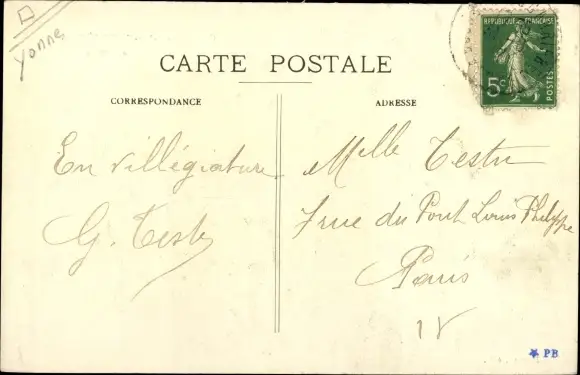 Yonne
CARTE POSTALE
RÉPUBLIQUE FRANÇAISE
5c
POSTES
CORRESPONDANCE
ADRESSE
En villégiature
G. Testu
Melle Testu
7 rue du Pont Louis Philippe
Paris
IV
PB